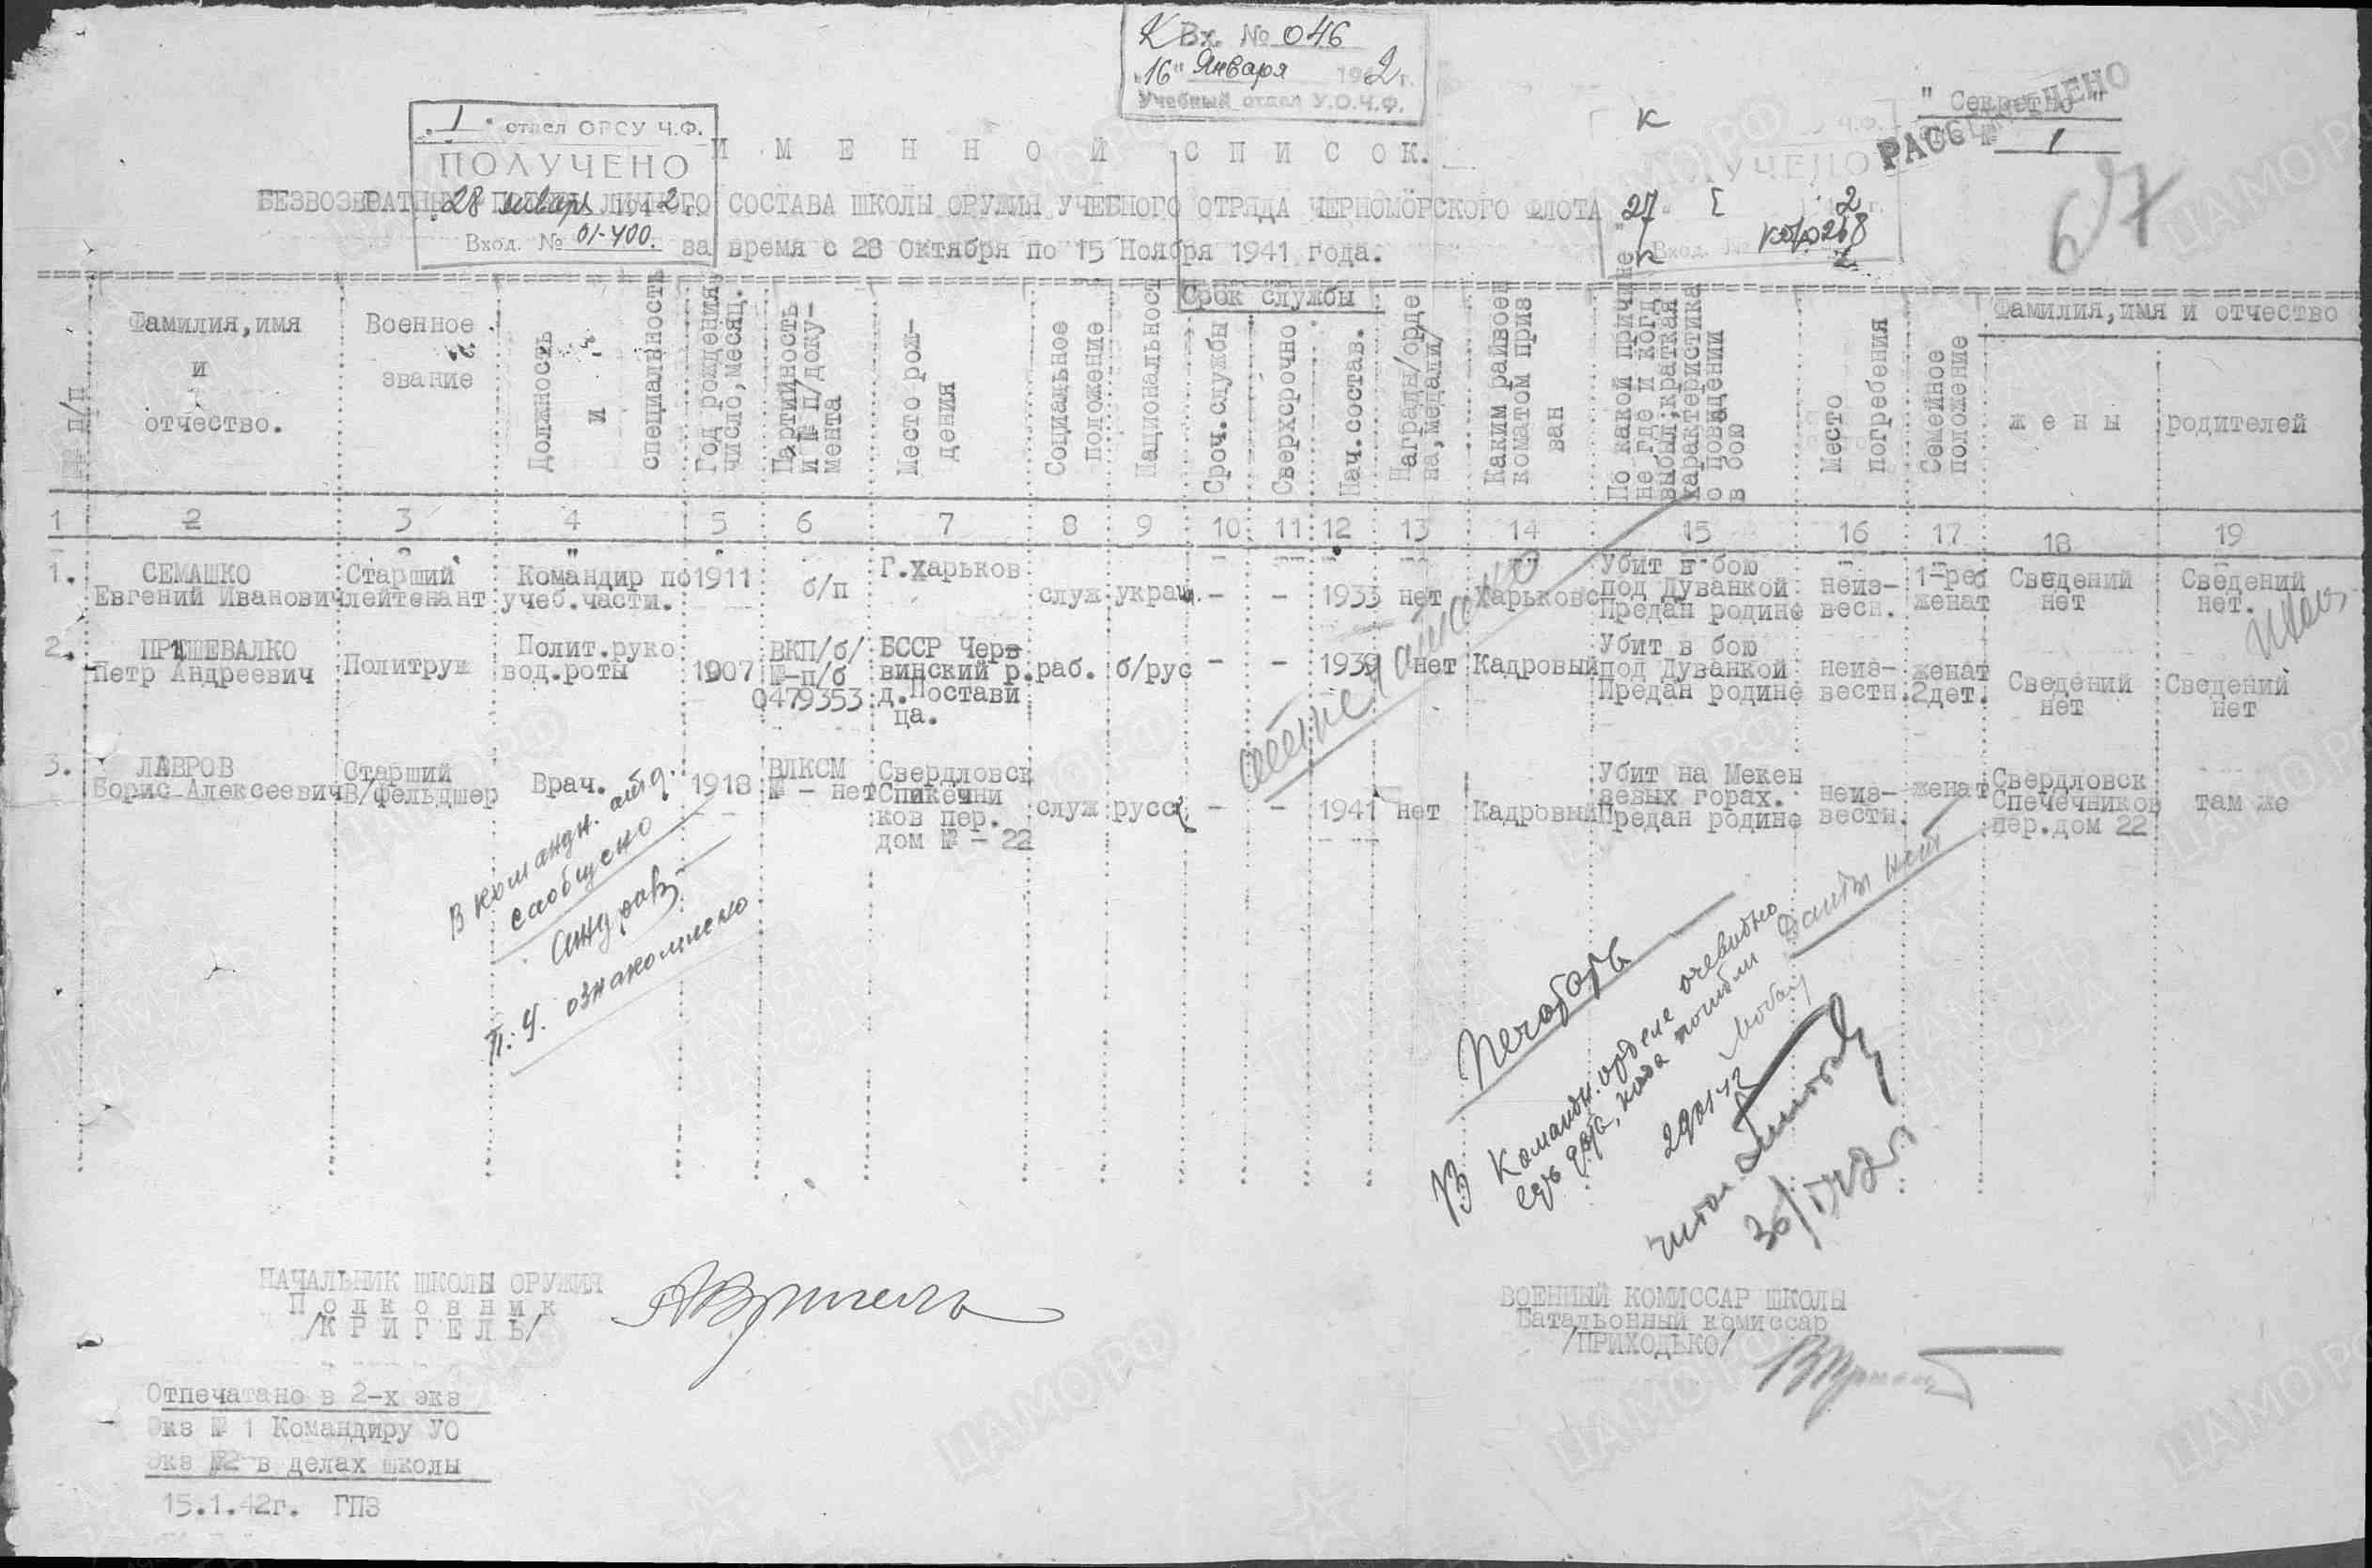 К Вх. № 046
"16" Января 1942г.
Учебный отдел У.О.Ч.Ф.
"Секретно"
РАССЕКРЕЧЕНО
1
67
"1" отдел ОРСУ Ч.Ф.
ПОЛУЧЕНО
28 январь 1942г.
Вход. № 01-400.
К
27 I 2
Вход. №
ИМЕННОЙ СПИСОК.
БЕЗВОЗВРАТНЫХ ПОТЕРЬ ЛИЧНОГО СОСТАВА ШКОЛЫ ОРУЖИЯ УЧЕБНОГО ОТРЯДА ЧЕРНОМОРСКОГО ФЛОТА
за время с 28 Октября по 15 Ноября 1941 года.
№№ п/п
Фамилия, имя
и
отчество.
Военное
звание
Должность
и
специальность
Год рождения,
число, месяц.
Партийность
и № п/доку-
мента
Место рож-
дения
Социальное
положение
Национальност
Срок службы
Сроч.службы
Сверхсрочно
Нач.состав.
Награды/орде
на, медали/
Каким райвоен
коматом приз
ван
По какой причине
не где и когда
выбыл; краткая
характеристика
о поведении
в бою
Место
погребения
Семейное
положение
Фамилия, имя и отчество
жены
родителей
1 2 3 4 5 6 7 8 9 10 11 12 13 14 15 16 17 18 19
1. СЕМАШКО
Евгений Иванович
Старший
лейтенант
Командир по
учеб.части.
1911
б/п
Г.Харьков
служ
украи.
- - 1933 нет Харьковс
Убит в бою
под Дуванкой
Предан родине
неиз-
весн.
1-реб
женат
Сведений
нет
Сведений
нет.
2. ПРИШЕВАЛКО
Петр Андреевич
Политрук
Полит.руко
вод.роты
1907
ВКП/б/
№-п/б
0479353
БССР Черв
винский р.
д.Постави
ца.
раб.
б/рус
- - 1939 нет Кадровый
Убит в бою
под Дуванкой
Предан родине
неиз-
вестн.
женат
2дет.
Сведений
нет
Сведений
нет
3. ЛАВРОВ
Борис Алексеевич
Старший
В/фельдшер
Врач.
1918
ВЛКСМ
№ - нет
Свердловск
Спичечни
ков пер.
дом № - 22
служ
русс
- - 1941 нет Кадровый
Убит на Мекен
зевых горах.
Предан родине
неиз-
вестн.
женат
Свердловск
Спечечников
пер.дом 22
там же
В командн. отд.
сообщено
П.У. ознакомлено
В Командн. отделе очевидно
есть дата, когда погибли
29/01-42
читал
НАЧАЛЬНИК ШКОЛЫ ОРУЖИЯ
Полковник
/КРИГЕЛЬ/
ВОЕННЫЙ КОМИССАР ШКОЛЫ
Батальонный комиссар
/ПРИХОДЬКО/
Отпечатано в 2-х экз
Экз № 1 Командиру УО
Экз №2 в делах школы
15.1.42г. ГПЗ
ЦАМО РФ